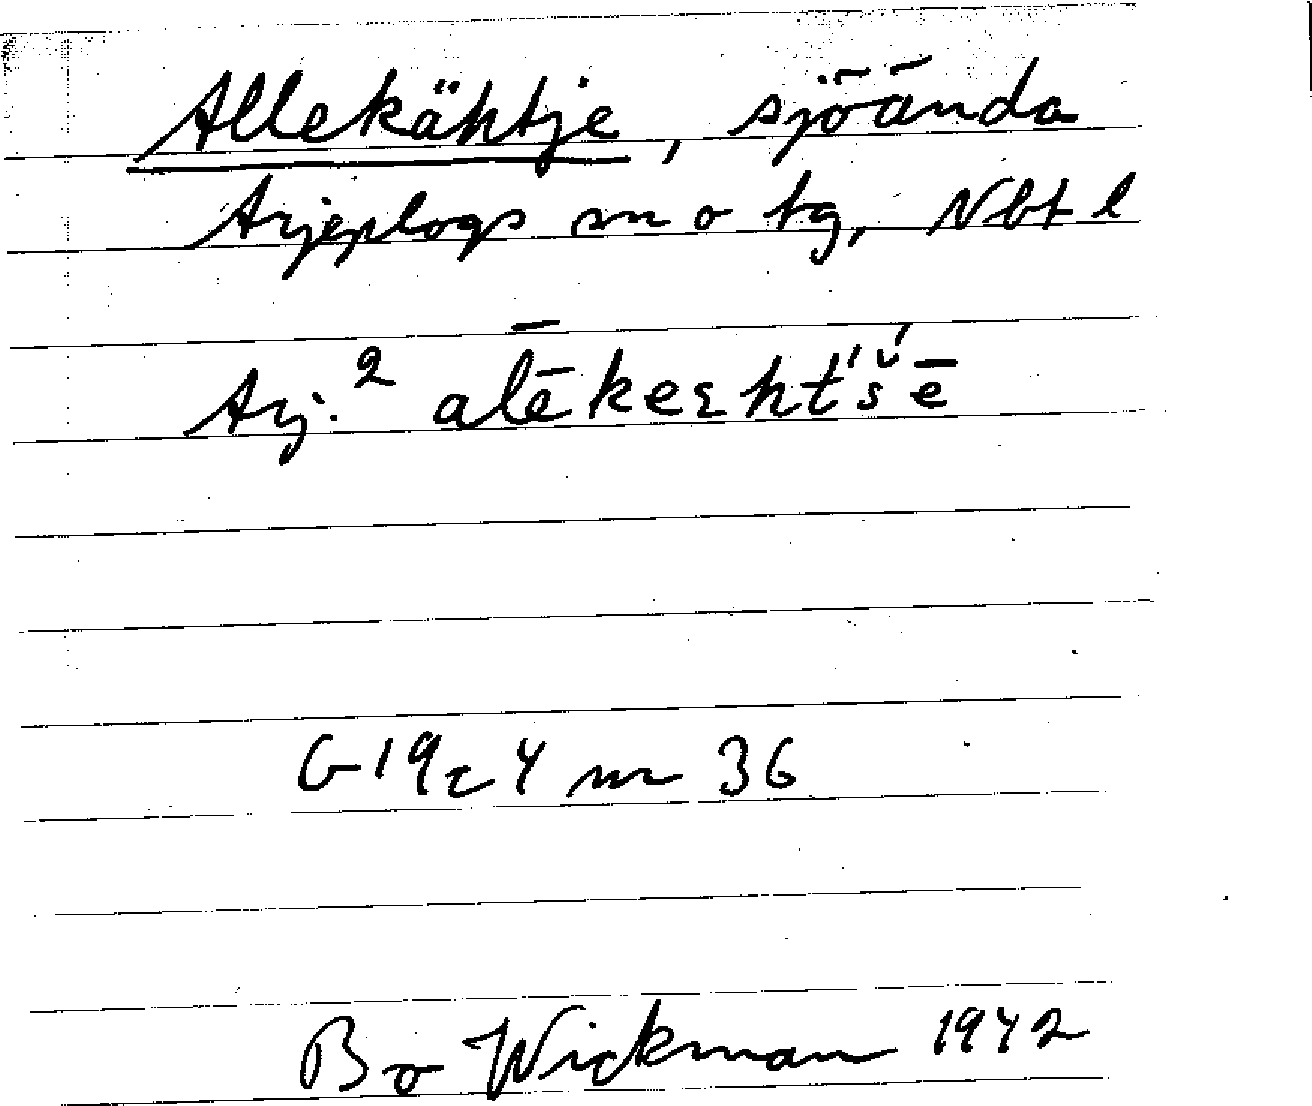 Allekähtje, sjöända
Arjeplogs sn o tg, Nbt l
Arj.² alēkeεht́š́ē
G 19 c 4 nr 36
Bo Wickman 1942